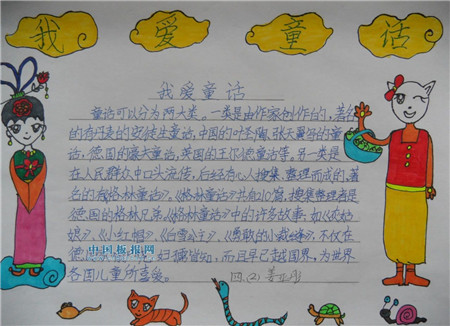 我 爱 童 话
我爱童话
童话可以分为两大类。一类是由作家创作的,著名
的有丹麦的安徒生童话,中国的叶圣陶、张天翼写的童
话,德国的豪夫童话,英国的王尔德童话等。另一类是
在人民群众中口头流传,后经有心人搜集、整理而成的,著
名的有《格林童话》。《格林童话》共有210篇,搜集整理者是
德国的格林兄弟。《格林童话》中的许多故事,如《灰姑
娘》、《小红帽》、《白雪公主》、《勇敢的小裁缝》,不仅在
德 妇孺皆知,而且早已越国界,为世界
各国儿童所喜爱。
中国板报网
四(2)